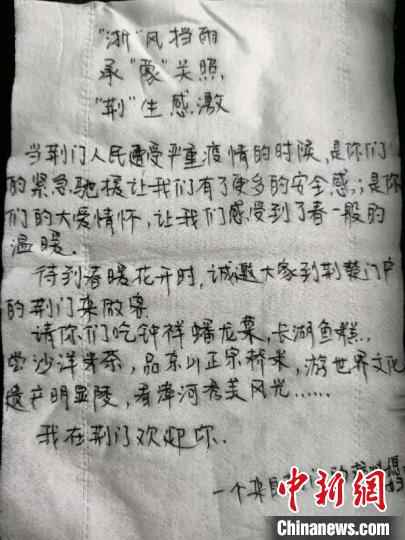 "浙"风挡雨
承"豫"关照,
"荆"生感激
当荆门人民遭受严重疫情的时候,是你们
的紧急驰援让我们有了更多的安全感;是你
们的大爱情怀,让我们感受到了春一般的
温暖.
待到春暖花开时,诚邀大家到荆楚门户
的荆门来做客
请你们吃钟祥蟠龙菜,长湖鱼糕,
尝沙洋 ,品京山正宗桥米,游世界文化
遗产明显陵,看漳河秀美风光……
我在荆门欢迎你.
一个来自
中新网
Chinanews.com